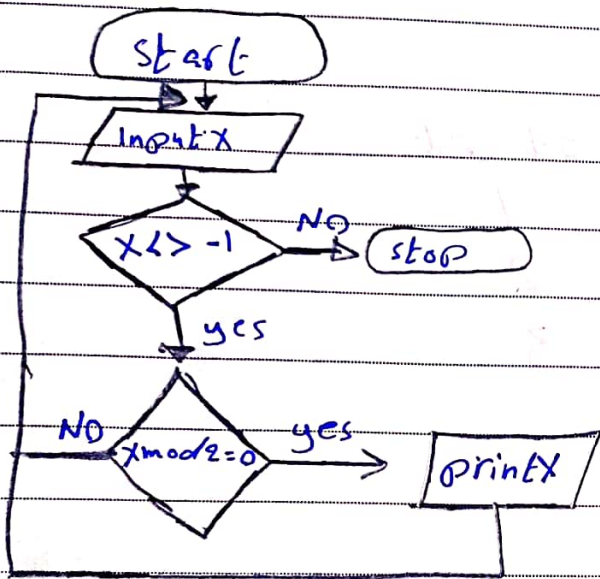 start
input X
X<> -1
NO
stop
yes
NO
Xmod2=0
yes
printX